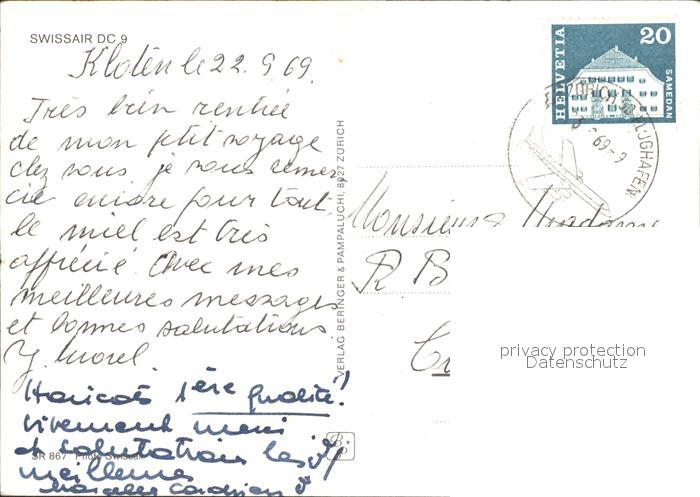 SWISSAIR DC 9
Kloten le 22.9.69.
Très bien rentrée
de mon ptit voyage
chez vous je vous remer
cie encore pour tout.
le miel est très
apprécié. Avec mes
meilleures messages
et bonnes salutations.
Y. Morel.
Haricots 1ère qualité!
vivement merci
et salutations les
meilleures
SR 867 Photo Swissair
VERLAG BERINGER & PAMPALUCHI, 8027 ZÜRICH
HELVETIA
20
SAMEDAN
ZÜRICH 58 FLUGHAFEN
69-9
Monsieur & Madame
R B
privacy protection
Datenschutz